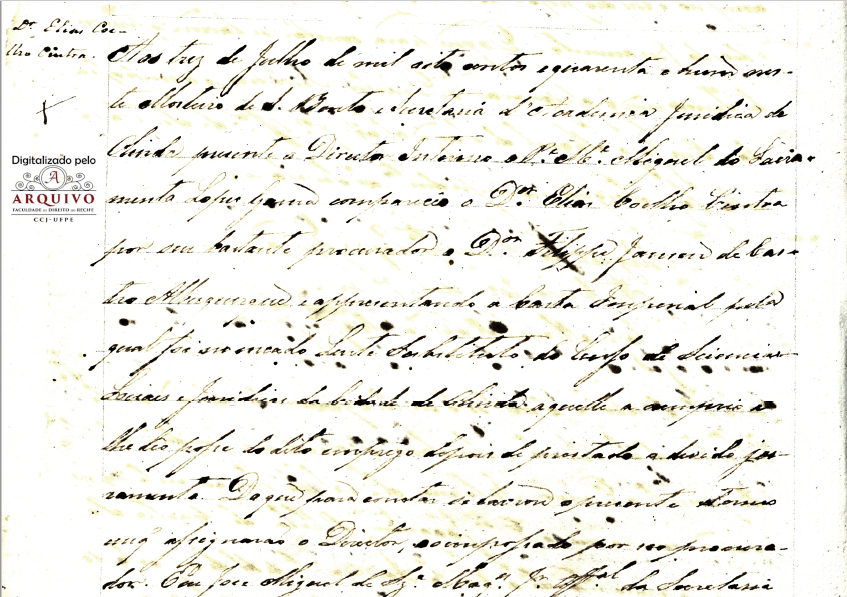 Dr. Elias Coe-
lho Cintra.
Digitalizado pelo
A
ARQUIVO
FACULDADE DE DIREITO DO RECIFE
CCJ-UFPE
Aos trez de Julho de mil oito centos e quarenta e hum nes-
te Mosteiro de S. Bento e Secretaria d'Academia Juridica de
Olinda presente o Director Interino o Pe. Me. Miguel do Sacra-
mento Lopes Gama compareceo o Dor. Elias Coelho Cintra
por seu bastante procurador o Dor. Filippe Jansen de Cas-
tro Albuquerque e appresentando a Carta Imperial pela
qual foi nomeado Lente Substituto do Curso de Sciencias
Sociaes e Juridicas da Cidade de Olinda aquelle a cumprio e
lhe deo posse do dito emprego depois de prestado o devido ju-
ramento. Do que para constar se lavrou o presente termo
em q' assignarão o Director, e o impossado por seo procura-
dor. Eu José Miguel de Sza. Mag.es Jr. Offal. da Secretaria